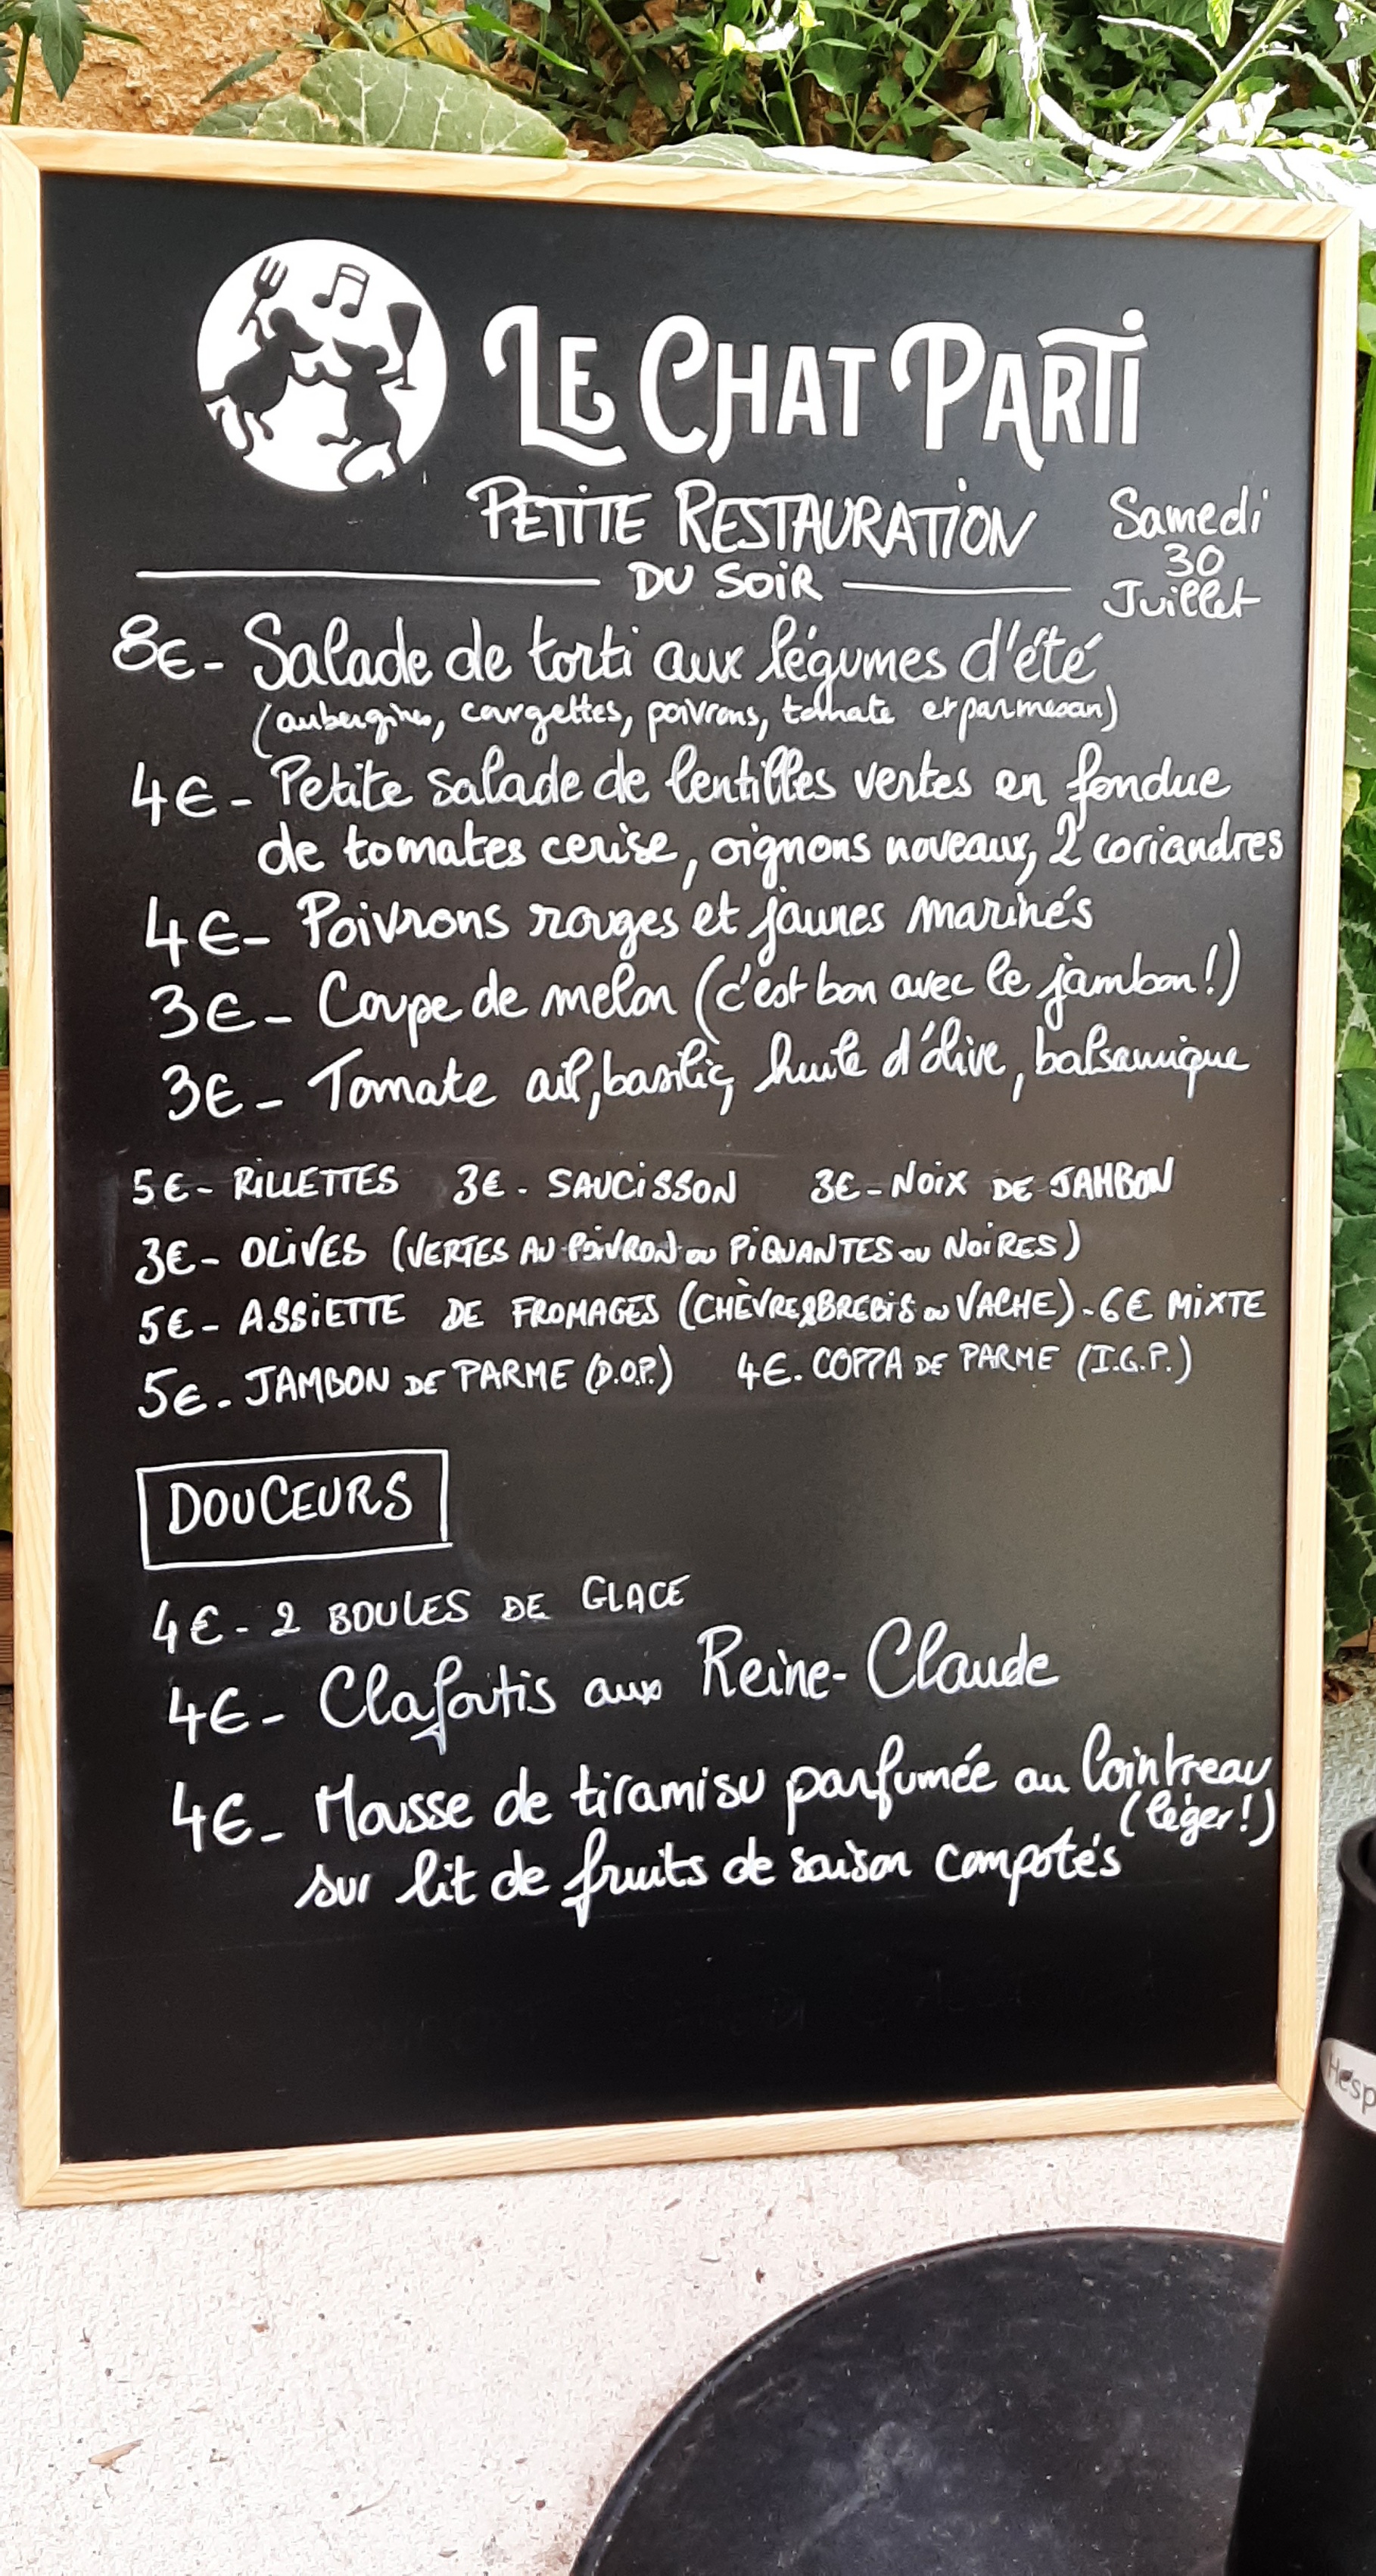 LE CHAT PARTI
PETITE RESTAURATION
DU SOIR
Samedi
30
Juillet
8€ - Salade de torti aux légumes d'été
(aubergines, courgettes, poivrons, tomate et parmesan)
4€ - Petite salade de lentilles vertes en fondue
de tomates cerise, oignons noveaux, 2 coriandres
4€ - Poivrons rouges et jaunes marinés
3€ - Coupe de melon (c'est bon avec le jambon!)
3€ - Tomate ail, basilic, huile d'olive, balsamique
5€ - RILLETTES 3€ - SAUCISSON 3€ - NOIX DE JAMBON
3€ - OLIVES (VERTES AU POIVRON ou PIQUANTES ou NOIRES)
5€ - ASSIETTE DE FROMAGES (CHÈVRE&BREBIS ou VACHE) - 6€ MIXTE
5€ - JAMBON DE PARME (D.O.P.) 4€ - COPPA DE PARME (I.G.P.)
DOUCEURS
4€ - 2 BOULES DE GLACE
4€ - Clafoutis aux Reine-Claude
4€ - Mousse de tiramisu parfumée au Cointreau
(léger!)
sur lit de fruits de saison compotés
Hesp